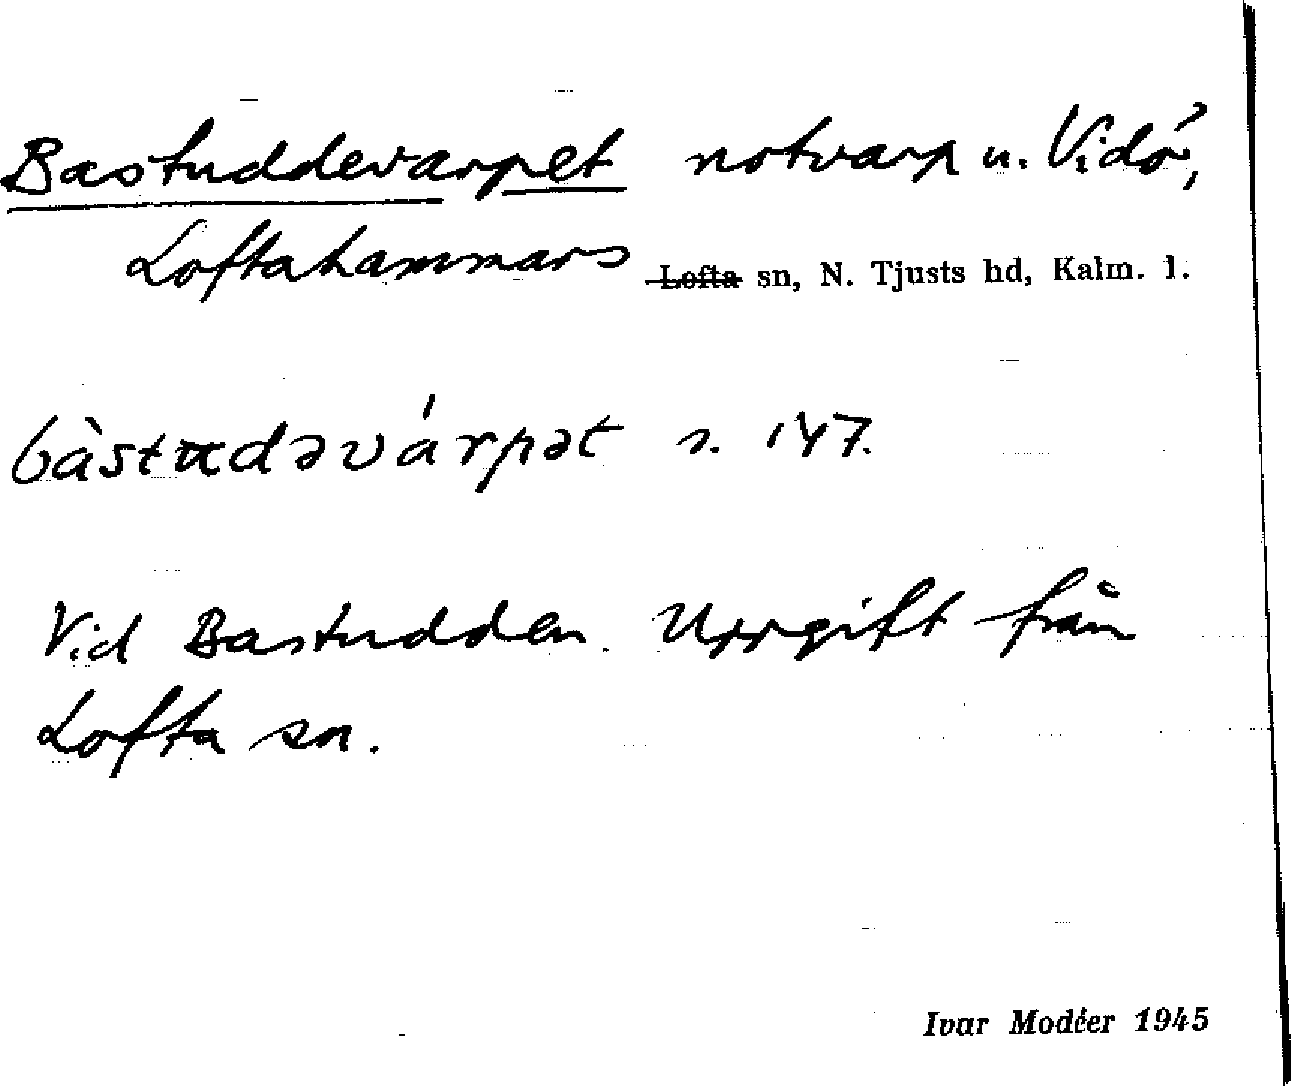 Bastuddevarpet notvarp u. Vidö,
Loftahammars Lofta sn, N. Tjusts hd, Kalm. l.
bàstudəvárpət s. 147.
Vid Bastudden. Uppgift från
Lofta sn.
Ivar Modéer 1945